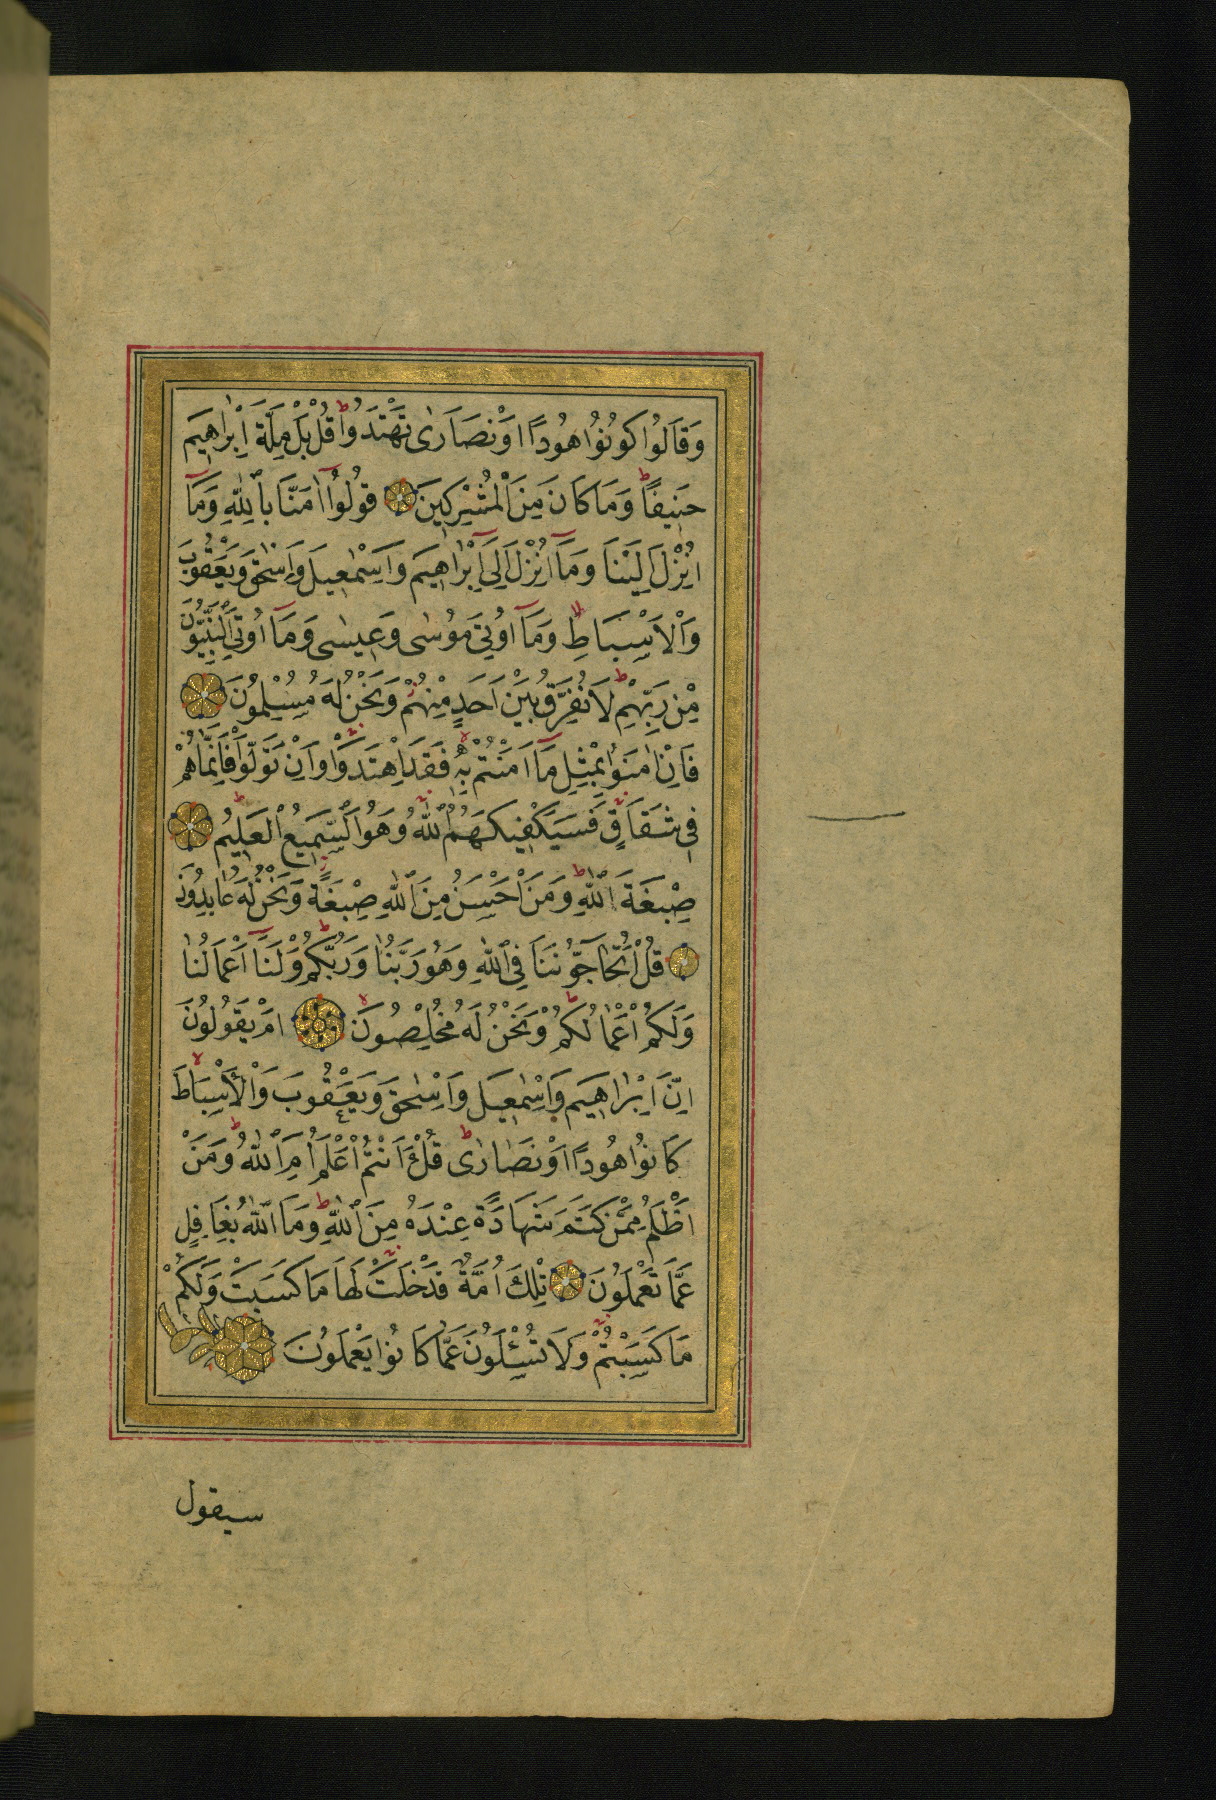 وَقَالُوا كُونُوا هُودًا اَوْ نَصَارٰى تَهْتَدُوا قُلْ بَلْ مِلَّةَ اِبْرٰهِيمَ
حَنِيفًا وَمَا كَانَ مِنَ الْمُشْرِكِينَ قُولُوٓا اٰمَنَّا بِاللّٰهِ وَمَٓا
اُنْزِلَ اِلَيْنَا وَمَٓا اُنْزِلَ اِلٰٓى اِبْرٰهِيمَ وَاِسْمٰعِيلَ وَاِسْحٰقَ وَيَعْقُوبَ
وَالْاَسْبَاطِ وَمَٓا اُوتِيَ مُوسٰى وَعِيسٰى وَمَٓا اُوتِيَ النَّبِيُّونَ
مِنْ رَبِّهِمْ لَا نُفَرِّقُ بَيْنَ اَحَدٍ مِنْهُمْ وَنَحْنُ لَهُ مُسْلِمُونَ
فَاِنْ اٰمَنُوا بِمِثْلِ مَٓا اٰمَنْتُمْ بِهِ فَقَدِ اهْتَدَوْا وَاِنْ تَوَلَّوْا فَاِنَّمَا هُمْ
فِي شِقَاقٍ فَسَيَكْفِيكَهُمُ اللّٰهُ وَهُوَ السَّمِيعُ الْعَلِيمُ
صِبْغَةَ اللّٰهِ وَمَنْ اَحْسَنُ مِنَ اللّٰهِ صِبْغَةً وَنَحْنُ لَهُ عَابِدُونَ
قُلْ اَتُحَٓاجُّونَنَا فِي اللّٰهِ وَهُوَ رَبُّنَا وَرَبُّكُمْ وَلَنَٓا اَعْمَالُنَا
وَلَكُمْ اَعْمَالُكُمْ وَنَحْنُ لَهُ مُخْلِصُونَ اَمْ يَقُولُونَ
اِنَّ اِبْرٰهِيمَ وَاِسْمٰعِيلَ وَاِسْحٰقَ وَيَعْقُوبَ وَالْاَسْبَاطَ
كَانُوا هُودًا اَوْ نَصَارٰى قُلْ ءَاَنْتُمْ اَعْلَمُ اَمِ اللّٰهُ وَمَنْ
اَظْلَمُ مِمَّنْ كَتَمَ شَهَادَةً عِنْدَهُ مِنَ اللّٰهِ وَمَا اللّٰهُ بِغَافِلٍ
عَمَّا تَعْمَلُونَ تِلْكَ اُمَّةٌ قَدْ خَلَتْ لَهَا مَا كَسَبَتْ وَلَكُمْ
مَا كَسَبْتُمْ وَلَا تُسْـَٔلُونَ عَمَّا كَانُوا يَعْمَلُونَ
سيقول